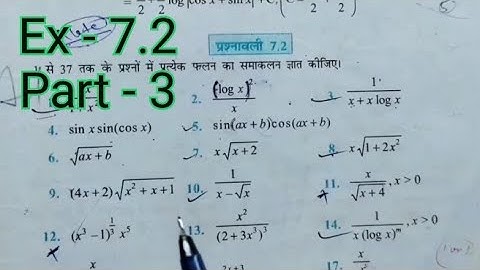 = x/2 + 1/2 log|cos x + sin x| + C
Ex - 7.2
Part - 3
प्रश्नावली 7.2
से 37 तक के प्रश्नों में प्रत्येक फलन का समाकलन ज्ञात कीजिए।
2. (log x)²/x 3. 1/(x + x log x)
4. sin x sin(cos x) 5. sin(ax + b) cos(ax + b)
6. √(ax + b) 7. x√(x + 2) 8. x√(1 + 2x²)
9. (4x + 2)√(x² + x + 1) 10. 1/(x − √x) 11. x/√(x + 4), x > 0
12. (x³ − 1)^(1/3) x⁵ 13. x²/(2 + 3x³)³ 14. 1/(x (log x)^m), x > 0